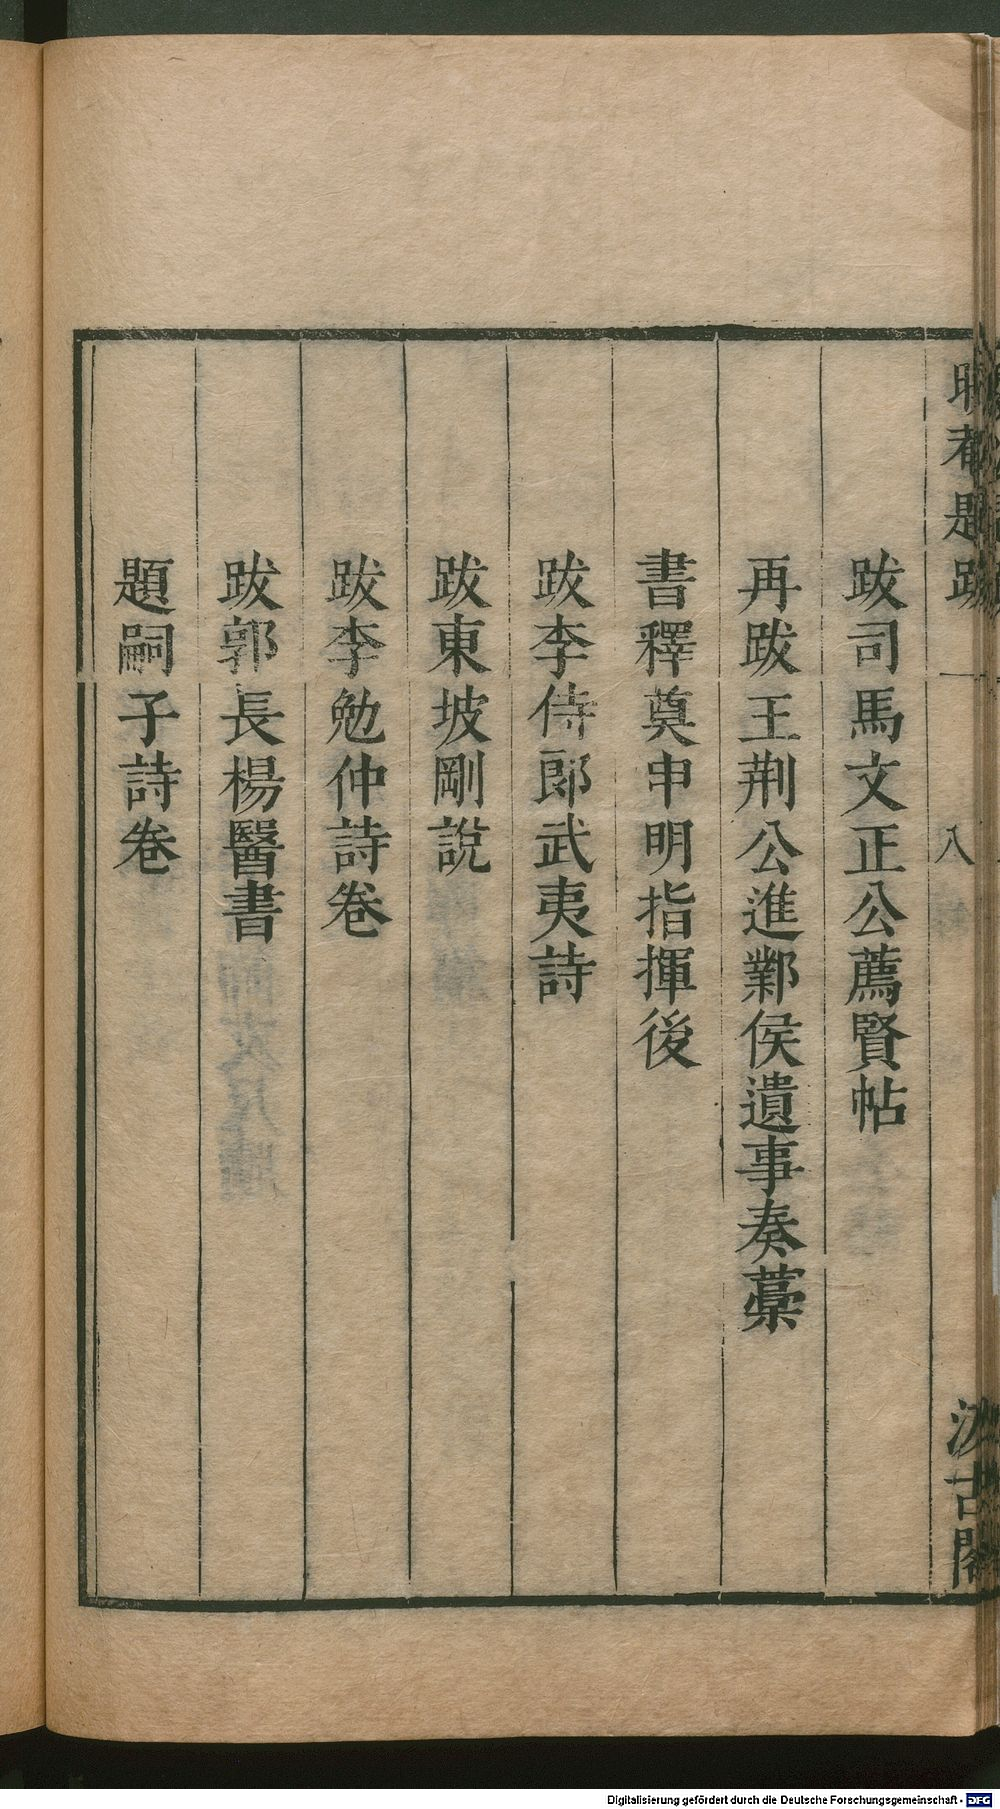 跋司馬文正公薦賢帖
再跋王荆公進鄴侯遺事奏藁
書釋奠申明指揮後
跋李侍郎武夷詩
跋東坡剛說
跋李勉仲詩卷
跋郭長楊醫書
題嗣子詩卷
題跋
八
汲古閣
Digitalisierung gefördert durch die Deutsche Forschungsgemeinschaft - DFG